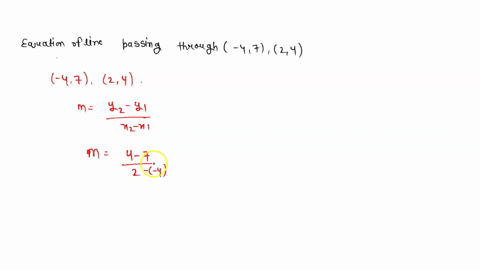 Equation of line passing through (-4,7), (2,4)
(-4,7), (2,4).
m = y2-y1 / x2-x1
m = 4-7 / 2-(-4)